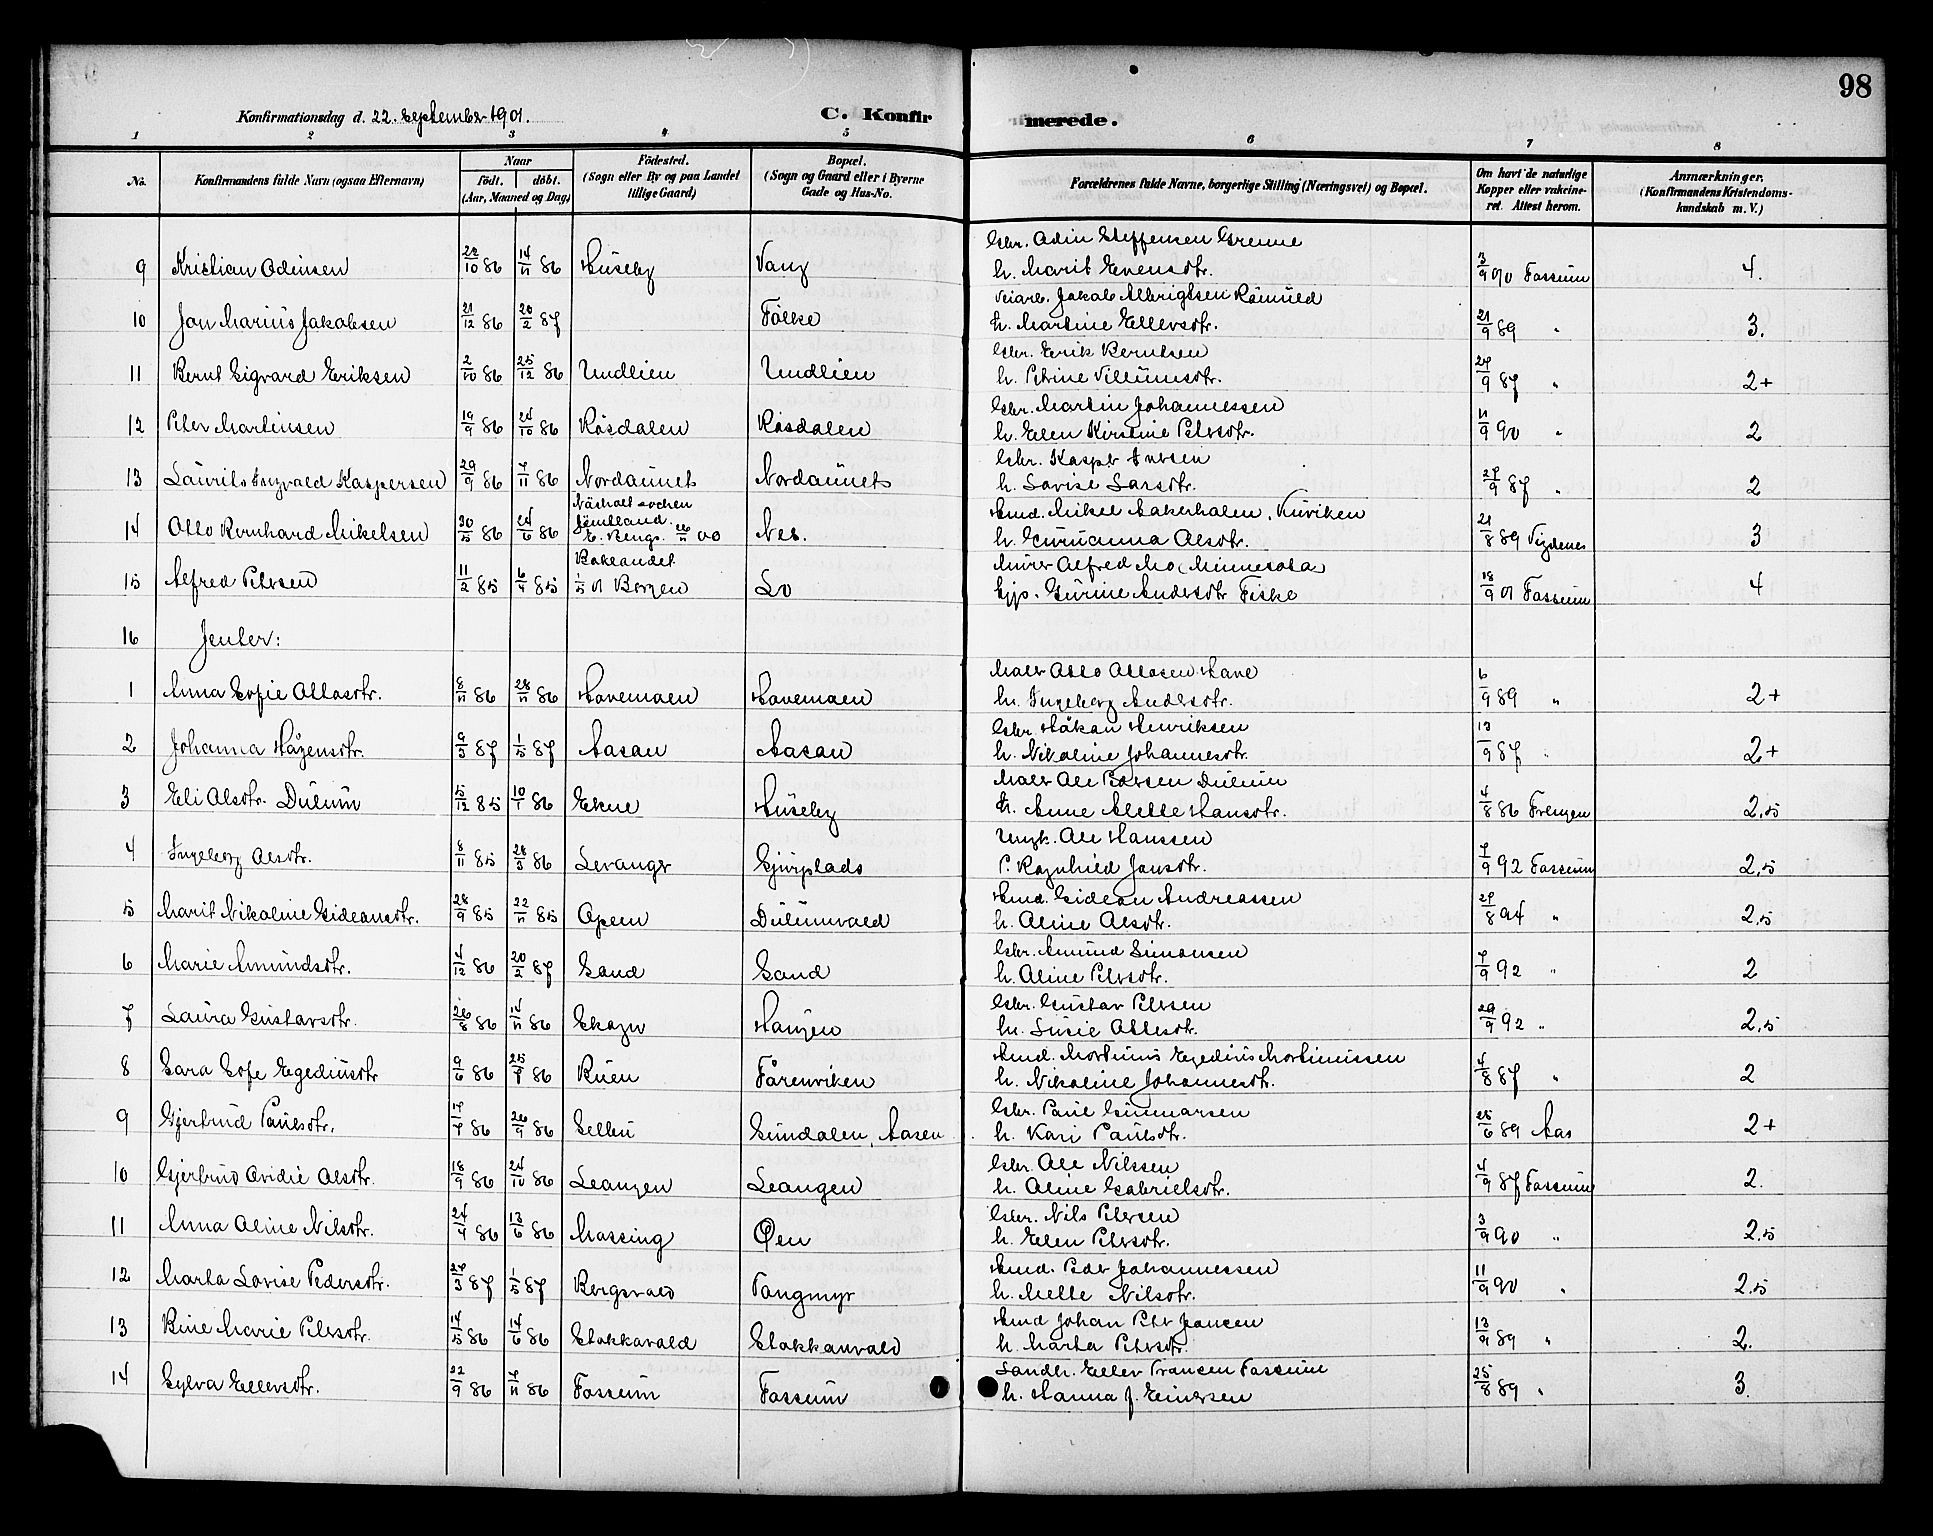 98
Konfirmationsdag d. 22. September 1901.
C. Konfirmerede.
1 2 3 4 5 6 7 8
No.
Konfirmandens fulde Navn (ogsaa Efternavn)
Naar
født. døbt.
(Aar, Maaned og Dag)
Fødested.
(Sogn eller By og paa Landet tillige Gaard)
Bopæl.
(Sogn og Gaard eller i Byerne Gade og Hus-No.
Forældrenes fulde Navne, borgerlige Stilling (Næringsvei) og Bopæl.
Om havt de naturlige Kopper eller vakcineret. Attest herom.
Anmærkninger.
(Konfirmandens Kristendomskundskab m. V.)
Gbr. Odin Steffensen Grenne
9 Kristian Odinsen 22/10 86 14/11 86 Huseby Vang h. Marit Evensdtr. 3/9 90 Fossum 4.
Veiarb. Jakob Albrigtsen Römuld
10 Jon Marius Jakobsen 21/12 86 20/2 87 Folke h. Martine Ellevsdtr. 21/9 89 " 3.
Gbr. Erik Berntsen
11 Bernt Sigvard Eriksen 2/10 86 25/12 86 Undlien Undlien h. Petrine Villumsdtr. 27/9 87 " 2+
Gbr. Martin Johannessen
12 Peter Martinsen 19/9 86 24/10 86 Røsdalen Røsdalen h. Elen Kirstine Petersdtr. 11/9 90 " 2
Gbr. Kasper Iversen
13 Laurits Ingvald Kaspersen 29/9 86 7/11 86 Nordaunet Nordaunet h. Lovise Larsdtr. 27/9 87 " 2
Näshalt sochen Jemtland. Smd. Mikel Aakerholen, Kuviken
14 Otto Bernhard Mikelsen 30/5 86 24/6 86 E. Bengs. 26/11 00 Nes. h. Guruanna Olsdtr. 21/8 89 Vigdenes 3
Baklandet Murer Alfred Mo (Minnesota)
15 Alfred Petersen 11/2 85 6/4 85 1/5 01 Bergen Lo Gjp. Gurine Andersdtr Fiske 18/9 01 Fossum 4
16 Jenter:
Maler Otto Ottosen Hove
1 Anna Sofie Ottosdtr. 8/11 86 28/11 86 Hovemoen Hovemoen h. Ingeborg Andersdtr. 6/9 89 " 2+
Gbr. Håkon Henriksen
2 Johanna Hågensdtr. 9/3 87 1/5 87 Aasan Aasan h. Nikoline Johannesdtr. 13/9 87 " 2+
Maler Ole Larsen Dulum
3 Eli Olsdtr. Dulum 5/12 85 10/1 86 Ekne Huseby h. Anne Mette Hansdtr. 4/8 86 Frengen 2,5
Ungk. Ole Hanssen
4 Ingeborg Olsdtr. 8/11 85 28/3 86 Levanger Gjivrplads P. Ragnhild Jonsdtr. 7/9 92 Fossum 2,5
Smd. Gideon Andreassen
5 Marit Nikoline Gideonsdtr. 28/9 85 22/11 85 Opem Dulumvald h. Oline Olsdtr. 27/8 94 " 2,5
Gbr. Amund Simonsen
6 Marie Amundsdtr. 4/12 86 20/2 87 Sand Sand h. Oline Petersdtr. 7/9 92 " 2
Gbr. Gustav Petersen
7 Laura Gustavsdtr. 26/8 86 14/11 86 Skogn Haugen h. Susie Ottesdtr. 29/9 92 " 2,5
Smd. Mortinus Egedius Mortinussen
8 Sara Sofe Egediusdtr 9/6 86 25/7 86 Ruen Fårenviken h. Nikoline Johannesdtr. 4/8 87 " 2
Gbr. Paul Gunnarsen
9 Gjertrud Paulsdtr. 17/7 86 26/9 86 Selbu Sundalen, Aasen h. Kari Paulsdtr. 25/6 89 Aas 2+
Gbr. Ole Nilssen
10 Gjertrud Ovidie Olsdtr. 18/9 86 24/10 86 Leangen Leangen h. Oline Gabrielsdtr. 4/9 87 Fossum 2.
Gbr. Nils Petersen
11 Anna Oline Nilsdtr. 24/4 86 13/6 86 Mossing Øen h. Elen Petersdtr. 3/9 90 " 2,5
Smd. Peder Johannessen
12 Marta Lovise Pedersdtr. 27/3 87 1/5 87 Bergsvald Vangmyr h. Mette Nilsdtr. 11/9 90 " 2,5
Smd Johan Peter Jansen
13 Bine Marie Petersdtr. 14/5 86 14/6 86 Stokkavald Stokkanvald h. Marta Petersdtr. 13/9 89 " 2.
Landh. Ellev Fransen Fossum
14 Sylva Ellevsdtr. 22/9 86 7/11 86 Fossum Fossum h. Hanna J. Einersen 25/8 89 " 3.